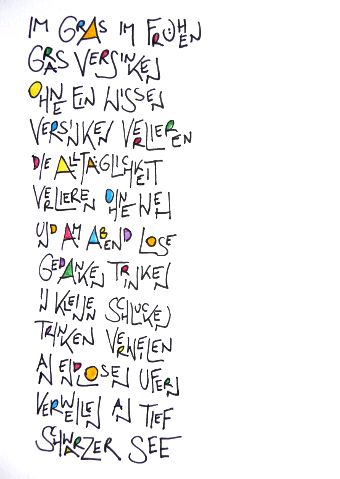 IM GRAS IM FRÜHEN
GRAS VERSINKEN
OHNE EIN WISSEN
VERSINKEN VERLIEREN
DIE ALLTÄGLICHKEIT
VERLIEREN OHNE WEH
UND AM ABEND LOSE
GEDANKEN TRINKEN
IN KLEINEN SCHLUCKEN
TRINKEN VERWEILEN
AN ENDLOSEN UFERN
VERWEILEN AN TIEF
SCHWARZER SEE